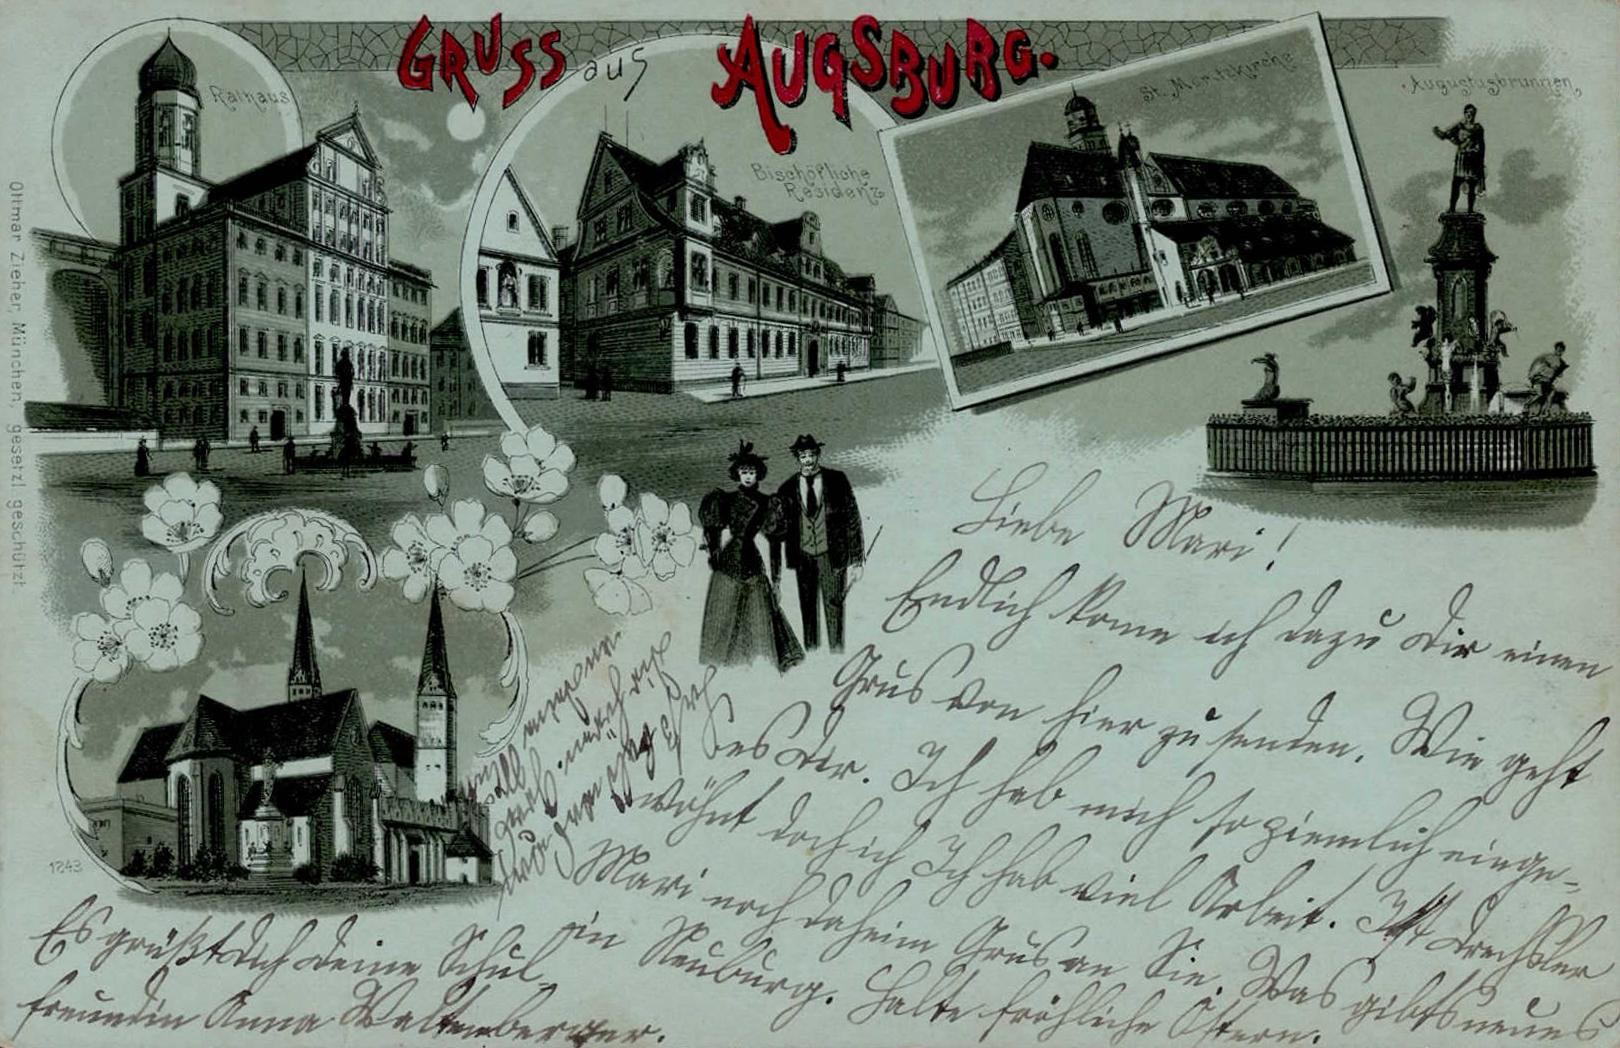 GRUSS aus AUGSBURG.
Rathaus
Bischöfliche
Residenz
St. Moritzkirche
Augustusbrunnen
Ottmar Zieher, München, gesetzl. geschützt.
1843
Liebe Mari!
Endlich kome ich dazu Dir einen
Grus von hier zu senden. Wie geht
es Dir. Ich hab mich so ziemlich einge-
wöhnt doch ich Ich hab viel Arbeit. Ist Drechsler
Mari noch daheim Grus an Sie. Was gibts neues
in Neuburg. Halte fröhliche Ostern.
Es grüßt Dich deine Schul-
freundin Anna Waltenberger.